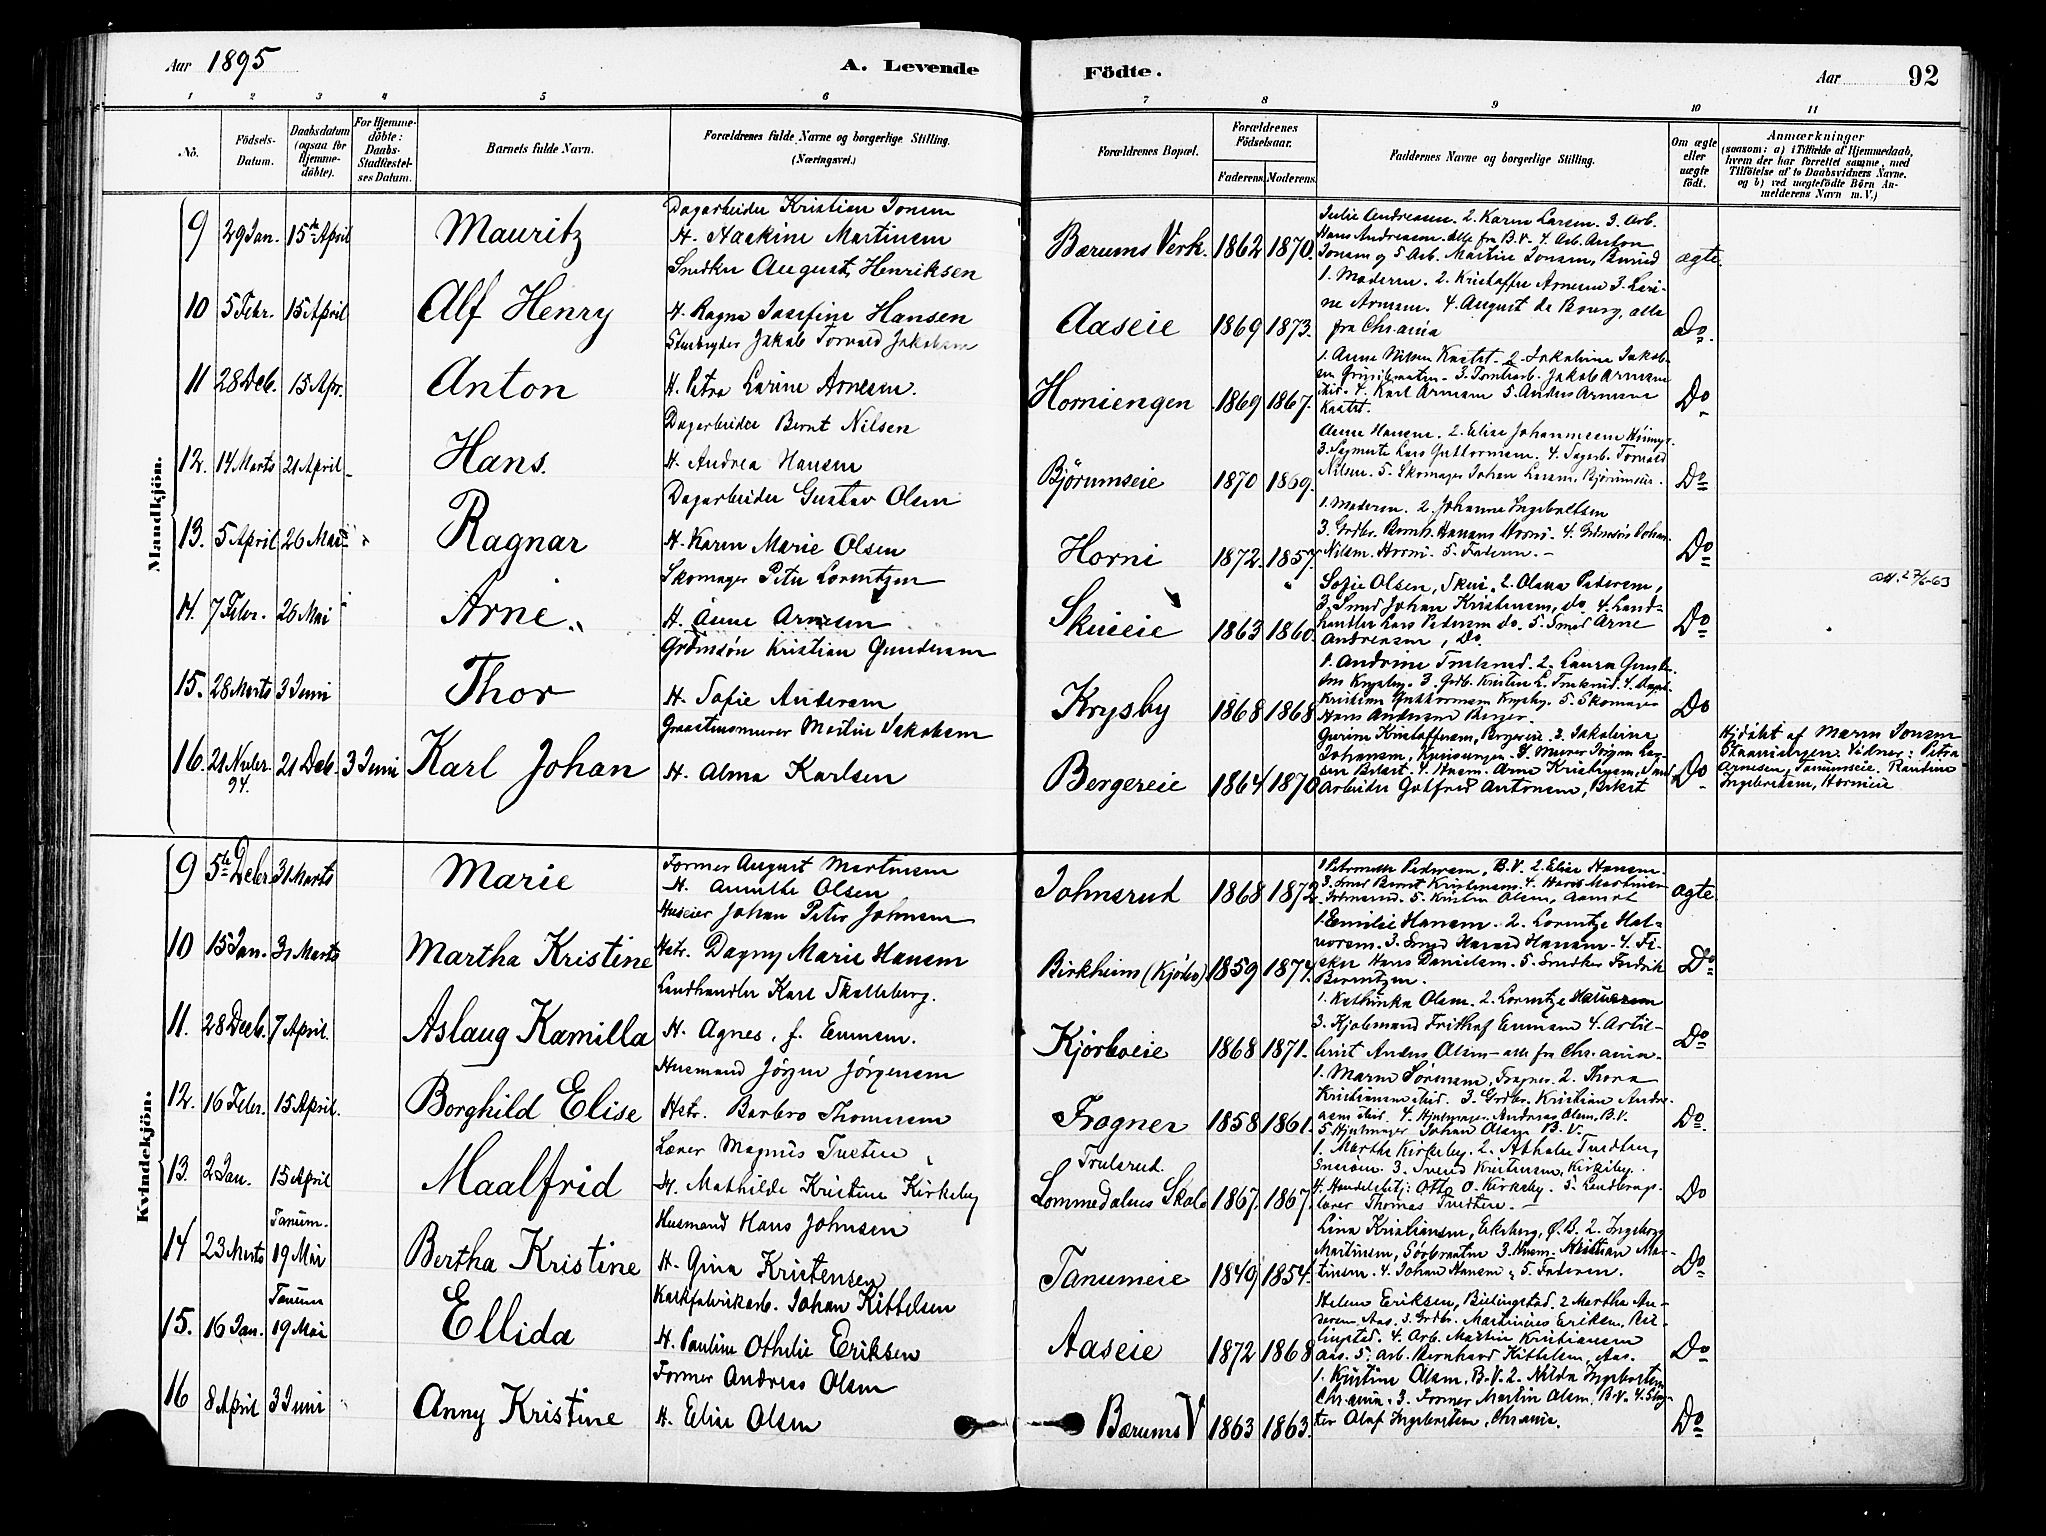 Aar 1895
A. Levende
Födte.
Aar
92
1 2 3 4 5 6 7 8 9 10 11
No.
Födsels-
Datum.
Daabsdatum
(ogsaa for
Hjemme-
döbte).
For Hjemme-
döbte:
Daabs-
Stadfæstel-
ses Datum.
Barnets fulde Navn.
Forældrenes fulde Navne og borgerlige Stilling.
(Næringsvei.)
Forældrenes Bopæl.
Forældrenes
Födselsaar.
Faderens. Moderens.
Faddernes Navne og borgerlige Stilling.
Om ægte
eller
uægte
födt.
Anmærkninger
(saasom: a) i Tilfælde af Hjemmedaab,
hvem der har forrettet samme, med
Tilföielse af to Daabsvidners Navne.
og b) ved uægtefödte Börn An-
melderens Navn m. V.)
Mandkjön.
9 29 Jan. 15de April Mauritz
Dagarbeider Kristian Jonsen
H. Haakine Martinsen
Bærums Verk. 1862 1870.
Julie Andreasen. 2. Karen Larsen. 3. Arb.
Hans Andreasen. alle fra B.V. 4. Arb. Anton
Jonsen og 5. Arb. Martin Jonsen, Burud
ægte.
10 5 Febr. 15 April Alf Henry
Snedker August Henriksen
H. Ragna Josefine Hansen
Aaseie 1869 1873.
1. Moderen. 2. Kristoffer Arnesen 3. Lari-
ne Arnesen. 4. August de Bourg, alle
fra Chr.ania
Do.
11 28 Deb. 15 Apr. Anton
Stenbryder Jakob Torvald Jakobsen
H. Petra Larine Arnesen.
Horniengen 1869 1867.
1. Anne Nilsen
3. Tomtearb. Jakob Arnesen
4. Karl Arnesen 5. Anders Arnesen
Do
12. 14 Marts 21 April Hans.
Dagarbeider Bernt Nilsen
H. Andrea Hansen
Bjørumseie 1870 1869.
Anne Hansen. 2. Elise Johannesen
3. Lars Guttormsen. 4. Dagarb. Torvald
Nilsen. 5. Skomager Johan Larsen, Bjørumseie.
Do
13. 5 April 26 Mai Ragnar
Dagarbeider Gustav Olsen
H. Karen Marie Olsen
Horni 1872. 1857.
1. Moderen. 2. Johanne Ingeboltsen
3. Grdbr. Bernh. Hansen Horni. 4. Grdmsøn Johan
Nilsen Horni. 5. Faderen.
Do
14. 7 Febr. 26 Mai Arne
Skomager Peter Lorentzen
H. Anne Arnesen
Skuieie 1863 1860.
Sofie Olsen, Skui. 2. Olava Pedersen,
3. Smed Johan Kristensen, do. 4. Land-
handler Lars Pedersen do. 5. Smed Arne
Andreasen, Do.
Do
15. 28 Marts 3 Juni Thor
Grdmsøn Kristian Gundersen
H. Sofie Andersen
Krysby 1868 1868
1. Andrine Trulsrud. 2. Laura Gunder-
sen Krysby. 3. Grdb. Kristen L. Trulsrud. 4.
Kristian Guttormsen Krysby. 5. Skomager
Hans Andersen Berger.
Do
16. 21 Nvber. 94. 21 Deb. 3 Juni Karl Johan
Graastensmurer Martin Jakobsen
H. Alma Karlsen
Bergereie 1864 1870
Gurine Kristoffersen, Bergereie. 2. Jakobine
Johansen,
Arbeider Gotfred Antonsen,
Do
Hjdöbt af Maren Jonsen
Vidner: Petra
Arnesen, Tanumseie.
Ingebretsen, Hornieie
Kvindekjön.
9 5te Deber 31 Marts Marie
Former August Martinsen
H. Annette Olsen
Johnsrud 1868 1872
Petronelle Pedersen, B.V. 2. Elise Hansen
3. Smed Bernt Kristensen. 4. Hans Martinsen
Johnsrud. 5. Kristen Olsen,
ægte
10 15 Jan. 31 Marts Martha Kristine
Huseier Johan Peter Johnsen
Hstr. Dagny Marie Hansen
Birkheim (Kjørbo) 1859 1874.
1. Emilie Hansen. 2. Lorentze Hal-
vorsen. 3. Smed Harald Hansen. 4. Fi-
sker Hans Danielsen. 5. Snedker Fredrik
Berntzen.
Do
11. 28 Decb. 7 April. Aslaug Kamilla
Landhandler Karl Skalleberg.
H. Agnes, f. Evensen.
Kjørboeie 1868 1871.
1. Kathinka Olsen. 2. Lorentze Halvorsen
3. Kjøbmand Frithof Evensen 4. Artil-
lerist Anders Olsen - alle fra Chr.ania.
Do
12. 16 Febr. 15 April. Borghild Elise
Husmand Jörgen Jörgensen
Hstr. Barbro Thomesen
Frogner 1858 1861.
1. Maren Sörensen, Frogner. 2. Thora
Kristiansen ibid. 3. Grdbr. Kristian Andre-
asen ibid. 4. Hjulmager Andreas Olsen, B.V.
5. Hjulmager Johan Olsen B.V.
Do.
13. 2 Jan. 15 April Maalfrid
Lærer Magnus Tveten
H. Mathilde Kristine Kirkeby
Trulsrud.
Lommedalens Skole 1867. 1867.
1. Marthe Kirkeby. 2. Athalie Tvedten,
Snarøen. 3. Svend Kristensen, Kirkeby.
4. Handelsbetj: Otto O. Kirkeby. 5. Landbrugs-
lærer Thomas Tvedten.
Do
14 23 Marts Tanum 19 Mai Bertha Kristine
Husmand Hans Johnsen
H. Gina Kristensen
Tanumeie 1849 1854.
Lina Kristiansen, Eiksberg, Ø.B. 2. Ingeborg
Martinsen, Sørbraaten 3. Husm. Kristian Mar-
tinsen. 4. Johan Hansen. 5. Faderen.
Do
15. 16 Jan. Tanum 19 Mai Ellida
Korkfabrikarb. Johan Kittelsen
H. Pauline Othelie Eriksen
Aaseie 1872 1868
Helene Eriksen, Billingstad. 2 Martha An-
dersen Aas. 3. Grdbr. Martinius Eriksen, Bil-
lingstad. 4. Arb. Martin Kristiansen
Aas. 5. Arb. Bernhard Kittelsen, Aas.
Do
16 8 April 3 Juni Anny Kristine
Former Andreas Olsen
H. Eline Olsen
Bærums V 1863 1863.
1. Kristine Olsen. B.V. 2. Hilda Ingebretsen
Chr.ania. 3. Former Martin Olsen. B.V. 4.
Olaf Ingebretsen, Chr.ania.
Do